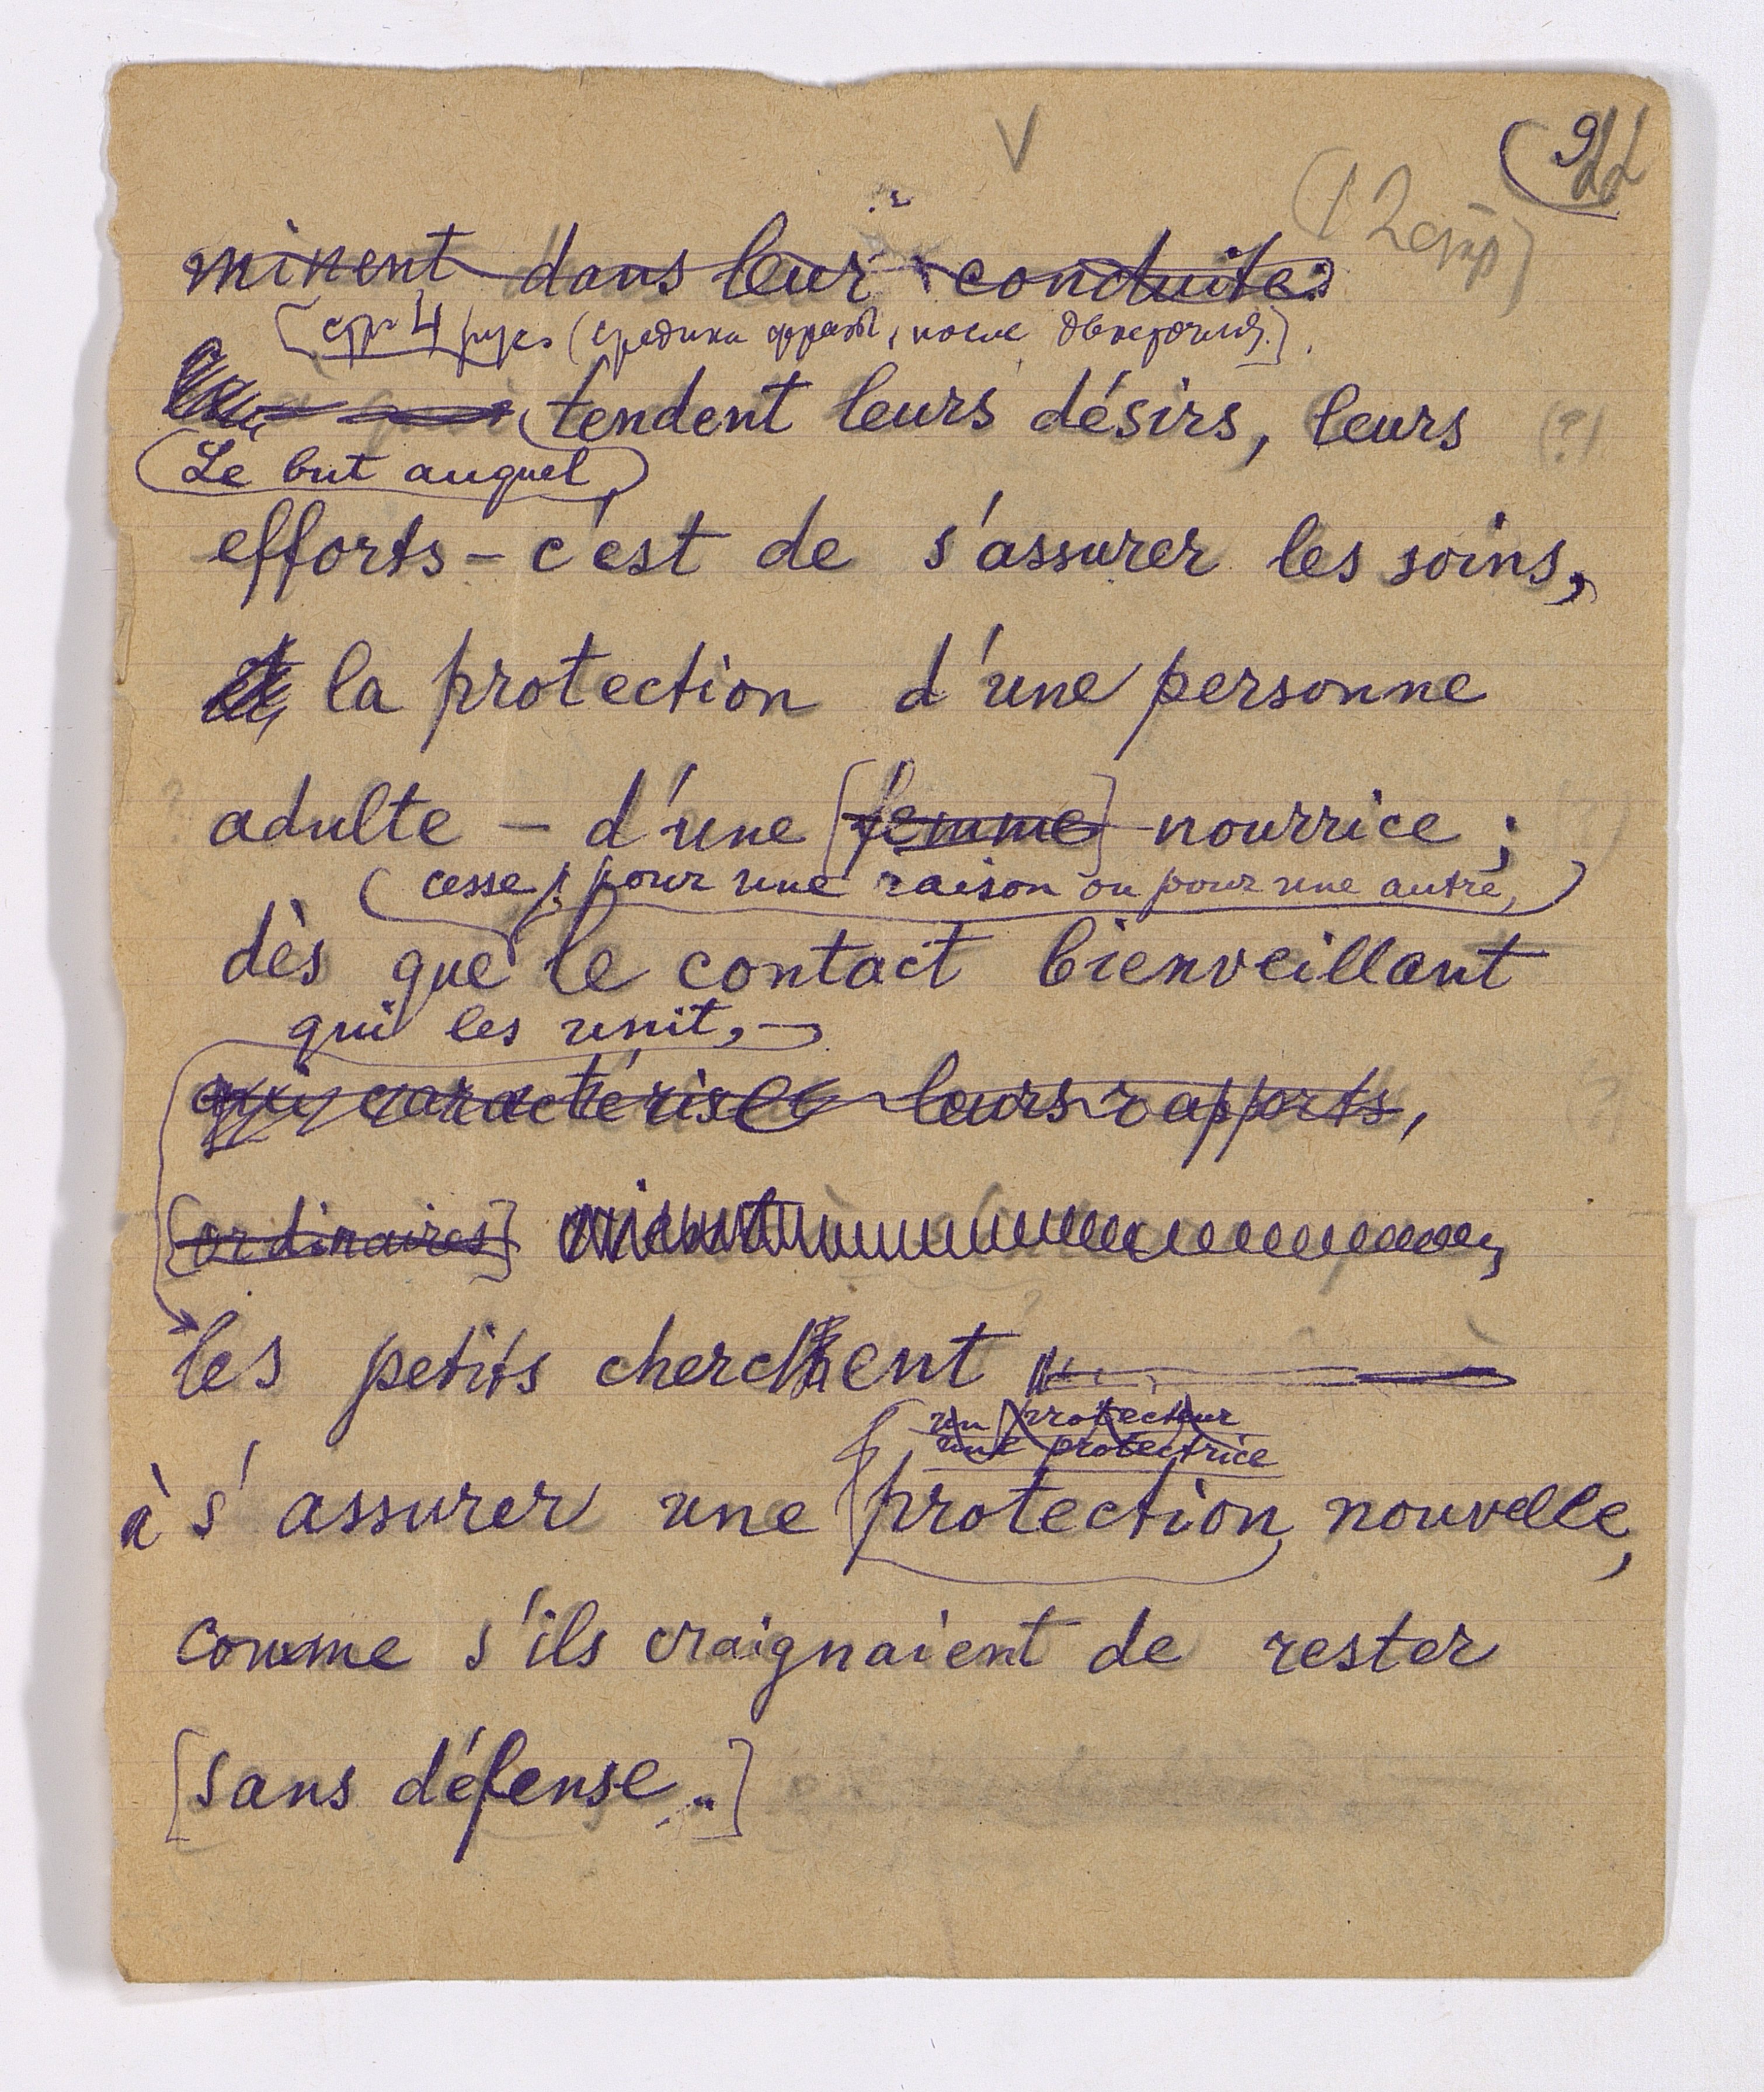 V
(9
(12 стр)
minent dans leur conduite:
[стр. 4 рук. (средина фразы, после двоеточия.].
tendent leurs désirs, leurs (?)
(Le but auquel)
efforts – c'est de s'assurer les soins,
et la protection d'une personne
adulte – d'une [femme] nourrice ;
(cesse, pour une raison ou pour une autre,)
dès que le contact bienveillant
qui les unit, –
qui caractérise leurs rapports,
[ordinaires]
les petits cherchent
un protecteur
une protectrice
à s'assurer une protection nouvelle,
comme s'ils craignaient de rester
[sans défense..]